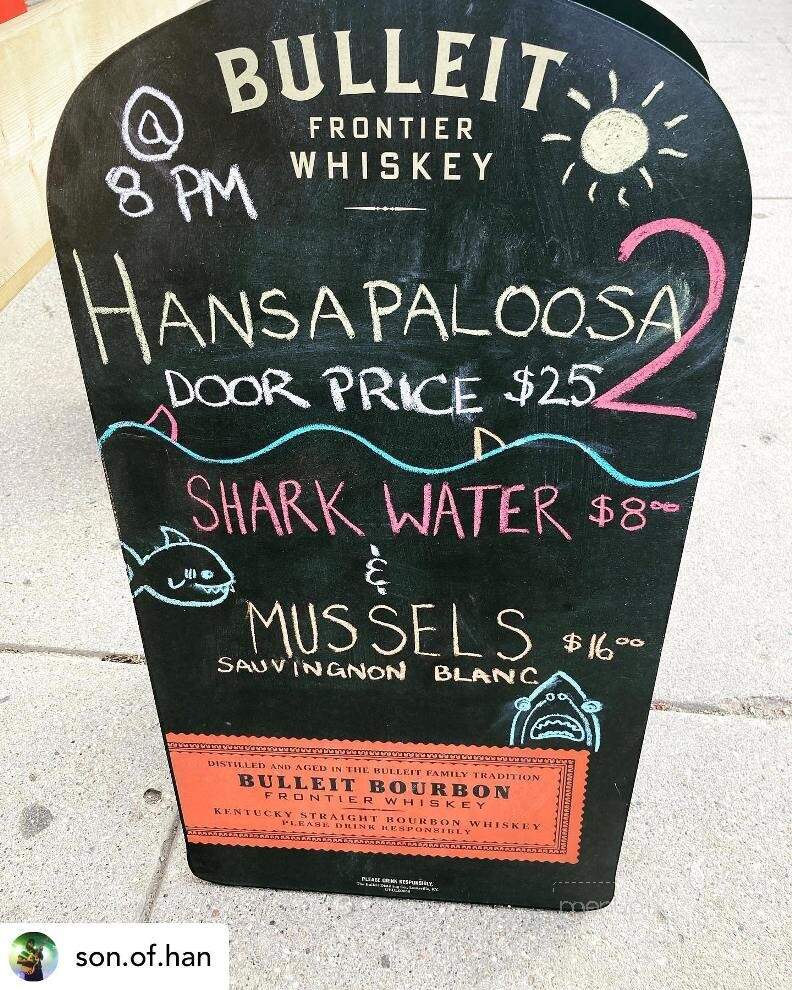 BULLEIT
FRONTIER
WHISKEY
@
8 PM
HANSAPALOOSA 2
DOOR PRICE $25
SHARK WATER $8⁰⁰
&
MUSSELS $16⁰⁰
SAUVINGNON BLANC
DISTILLED AND AGED IN THE BULLEIT FAMILY TRADITION
BULLEIT BOURBON
FRONTIER WHISKEY
KENTUCKY STRAIGHT BOURBON WHISKEY
PLEASE DRINK RESPONSIBLY
PLEASE DRINK RESPONSIBLY.
son.of.han